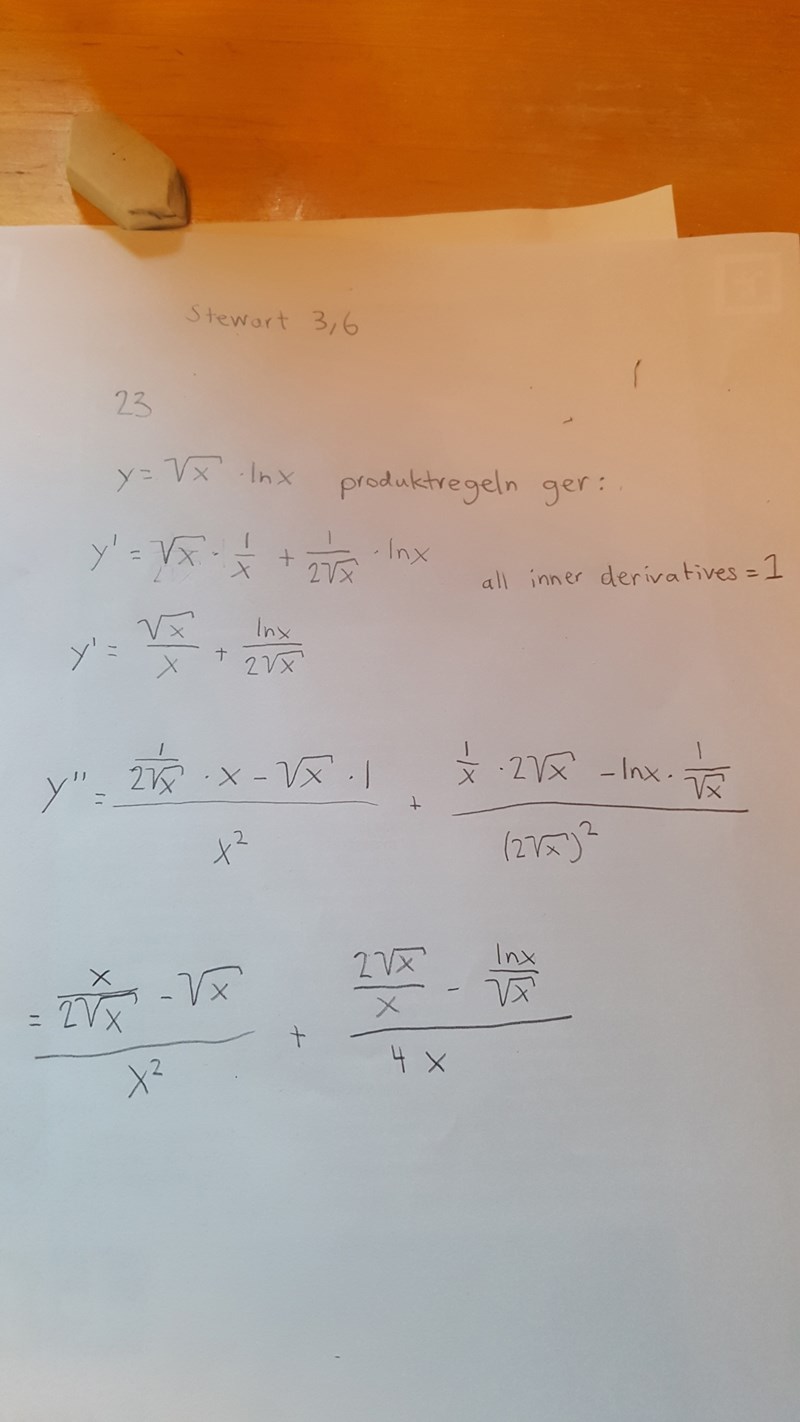 Stewart 3,6
23
y = √x · lnx produktregeln ger:
y' = √x · 1/x + 1/(2√x) · lnx all inner derivatives = 1
y' = √x/x + lnx/(2√x)
y'' = (1/(2√x) · x − √x · 1)/x² + (1/x · 2√x − lnx · 1/√x)/(2√x)²
= (x/(2√x) − √x)/x² + (2√x/x − lnx/√x)/(4x)